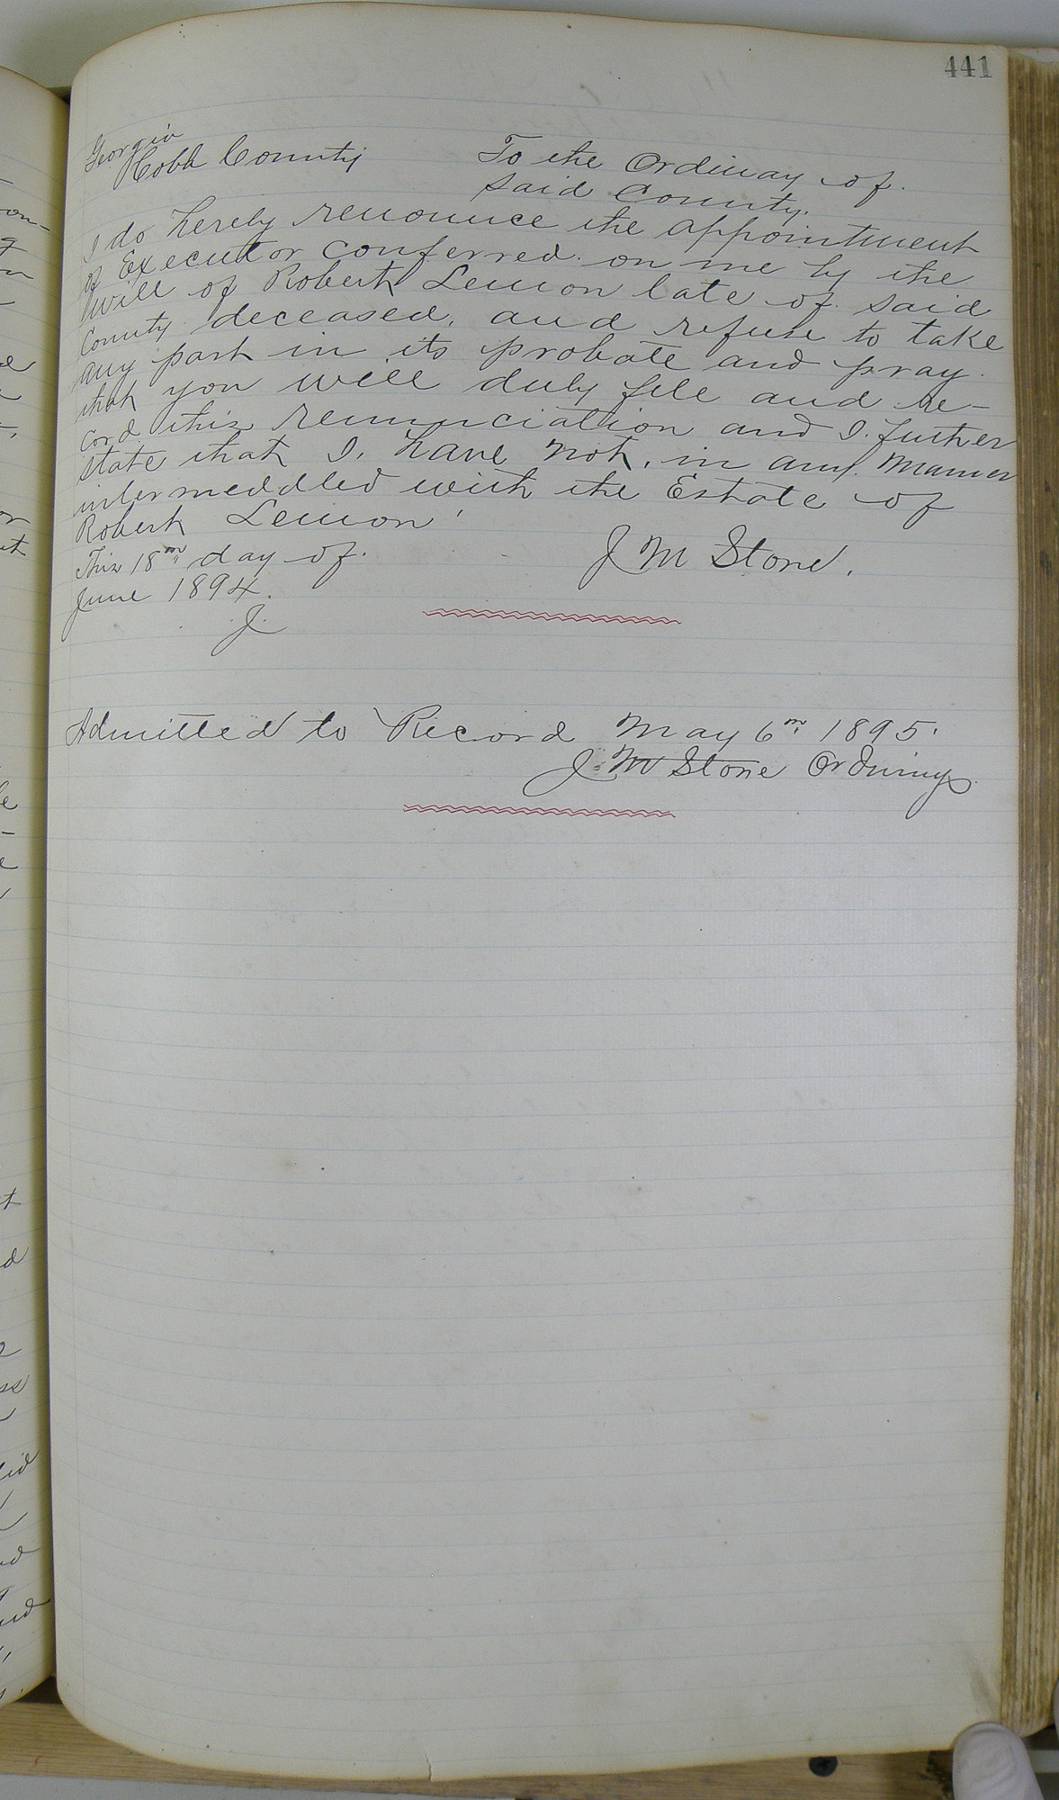 441
Georgia
Cobb County
To the Ordinary of
said County.
I do hereby renounce the appointment
of Executor conferred on me by the
Will of Robert Lemon late of said
County deceased, and refuse to take
any part in its probate and pray
that you will duly file and re-
cord this renunciation and I further
state that I, have not, in any manner
intermeddled with the Estate of
Robert Lemon
This 18th day of
June 1894.
J M Stone.
J
Admitted to Record May 6th 1895.
J. M Stone Ordinary